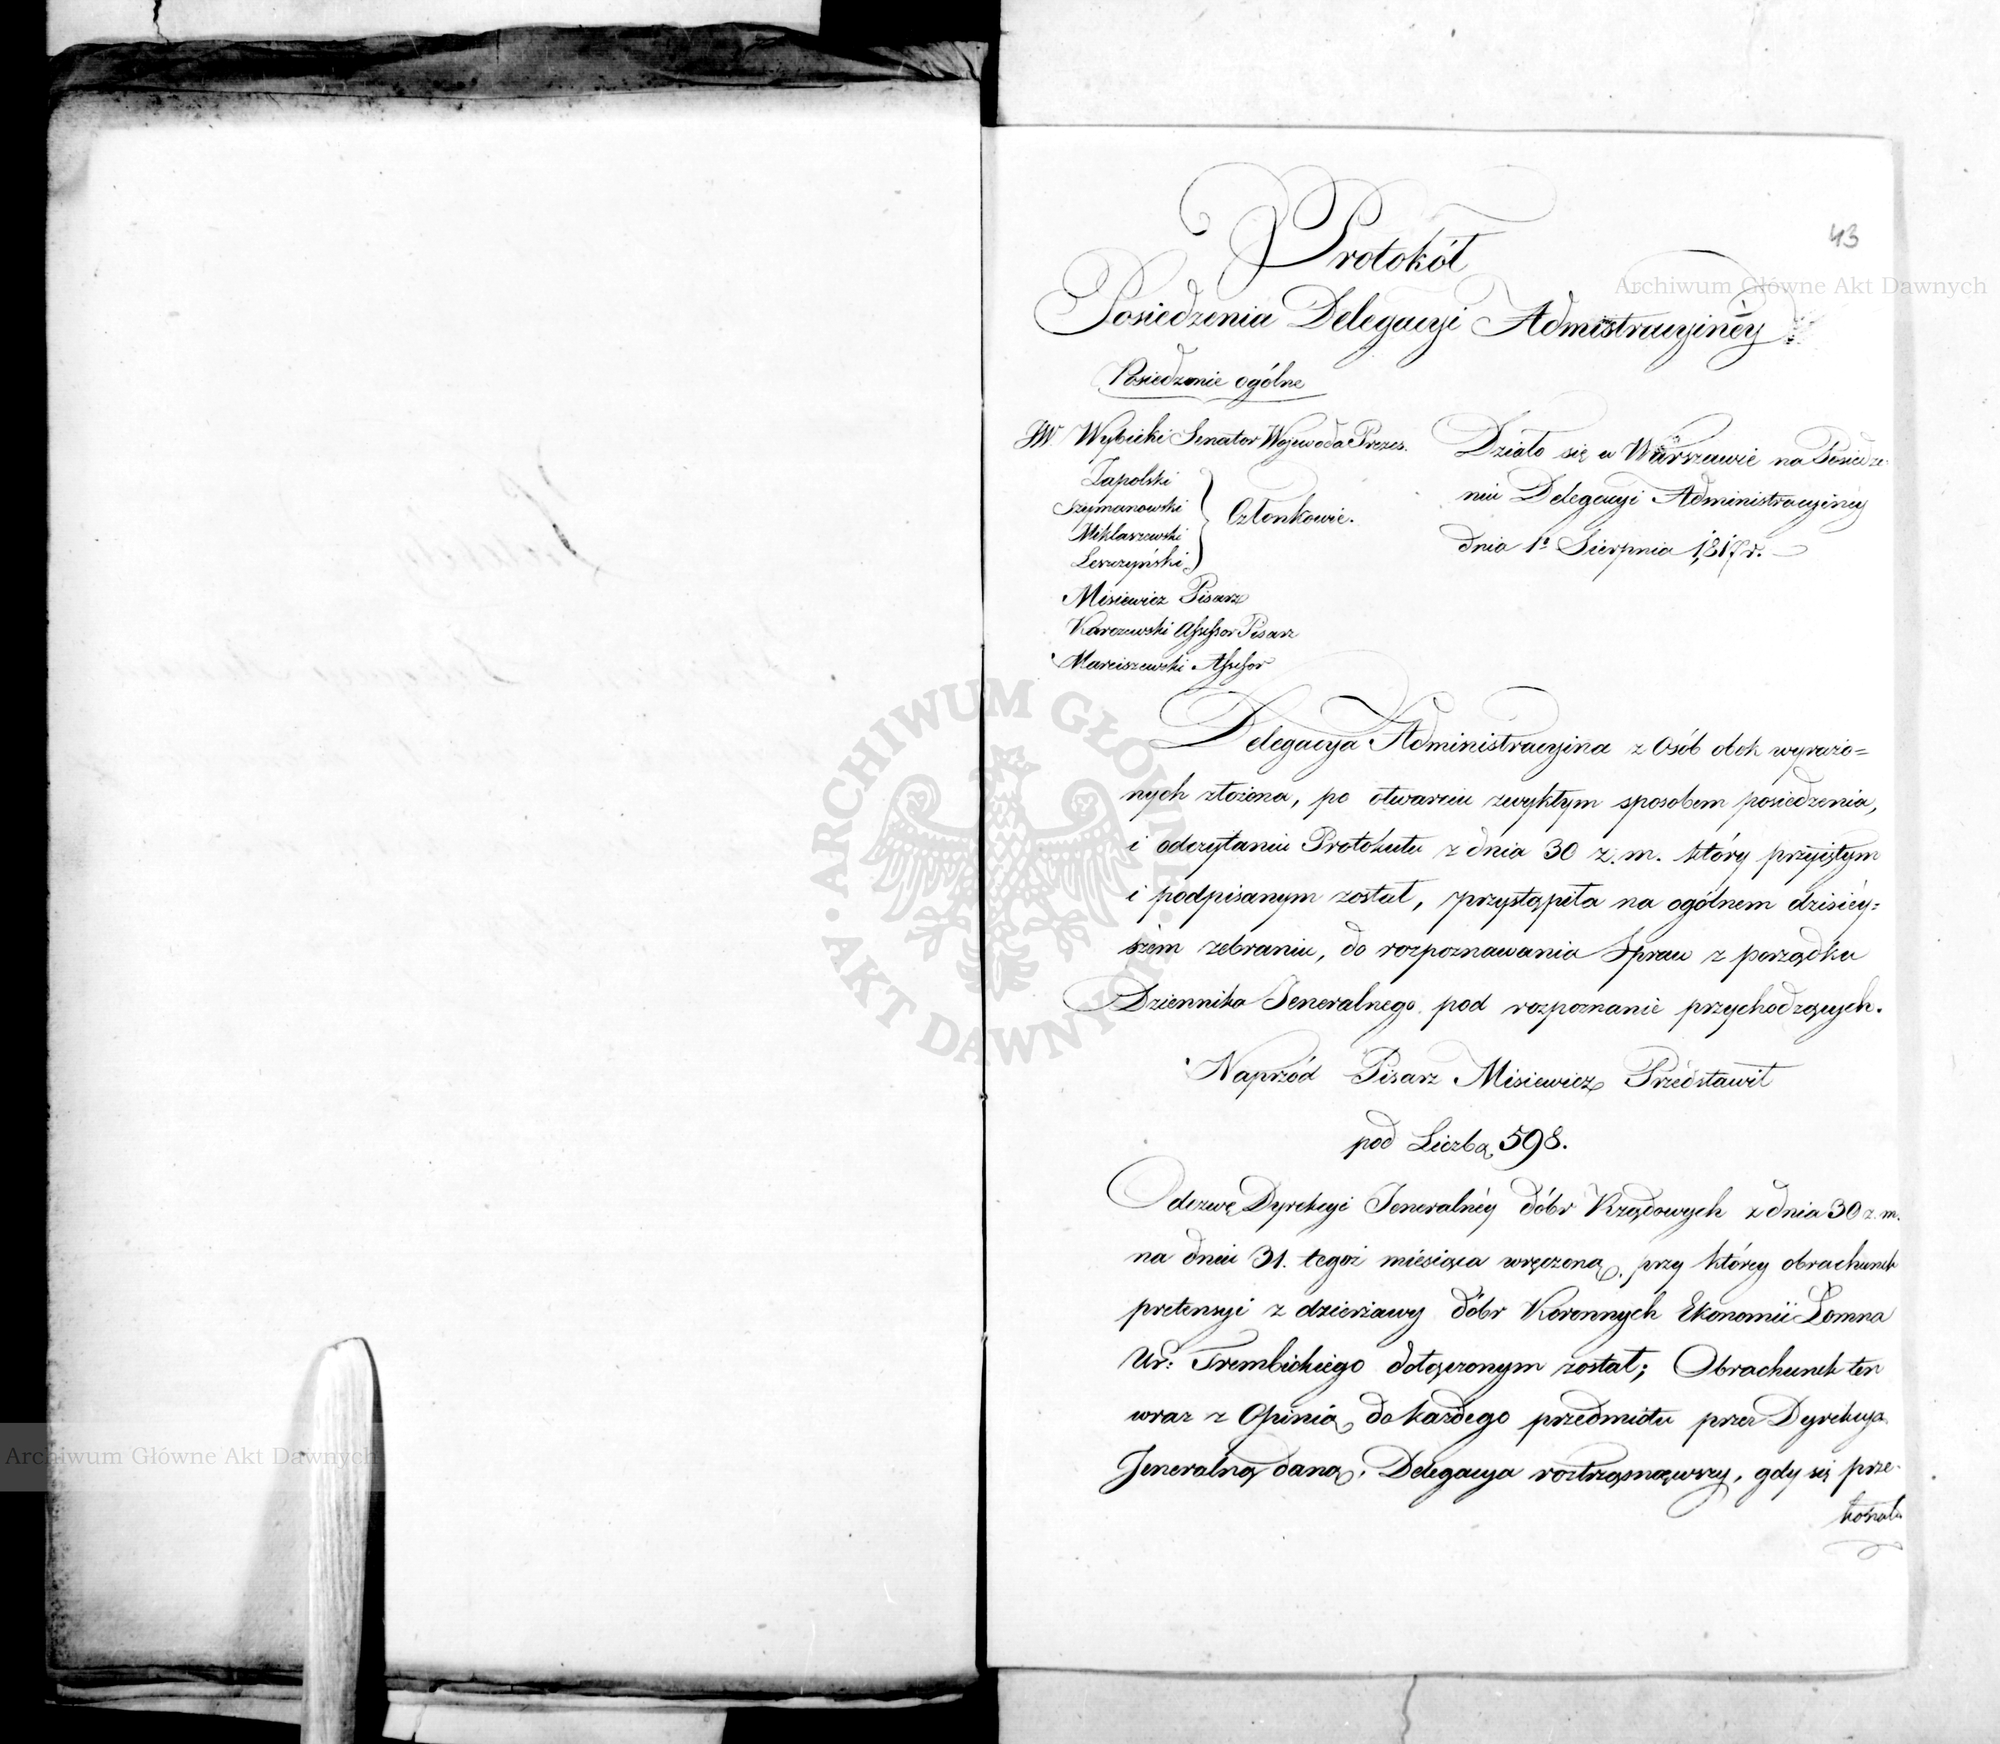 43
Protokół
Posiedzenia Delegacyi Admistracyinéy
Posiedzenie ogólne
JW. Wybicki Senator Wojewoda Prezes.
Zapolski
Szymanowski
Miklaszewski
Leszczyński
Członkowie.
Misiewicz Pisarz
Karczewski Assessor Pisarz
Marciszewski Assessor
Działo się w Warszawie na Posiedze-
niu Delegacyi Administracyinéy
dnia 1º Sierpnia 1817 r. —
Delegacya Administracyina z Osób obok wyrażo=
nych złożona, po otwarciu zwykłym sposobem posiedzenia,
i odczytaniu Protokułu z dnia 30 z. m. który przyiętym
i podpisanym został, przystąpiła na ogólnem dzisiéy=
szém zebraniu, do rozpoznawania Spraw z porządku
Dziennika Jeneralnego pod rozpoznanie przychodzących.
Naprzód Pisarz Misiewicz Przedstawił
pod Liczbą 598.
Odezwę Dyrekcyi Jeneralnéy dóbr Rządowych z dnia 30 z. m.
na dniu 31. tegoż miesiąca wręczoną, przy któréy obrachunek
pretensyi z dzierżawy dóbr Koronnych Ekonomii Łomna
Ur: Trembickiego dołączonym został; Obrachunek ten
wraz z Opinią do każdego przedmiotu przez Dyrekcyą
Jeneralną daną, Delegacya roztrząsnąwszy, gdy się prze-
konała
Archiwum Główne Akt Dawnych
ARCHIWUM GŁÓWNE • AKT DAWNYCH •
Archiwum Główne Akt Dawnych